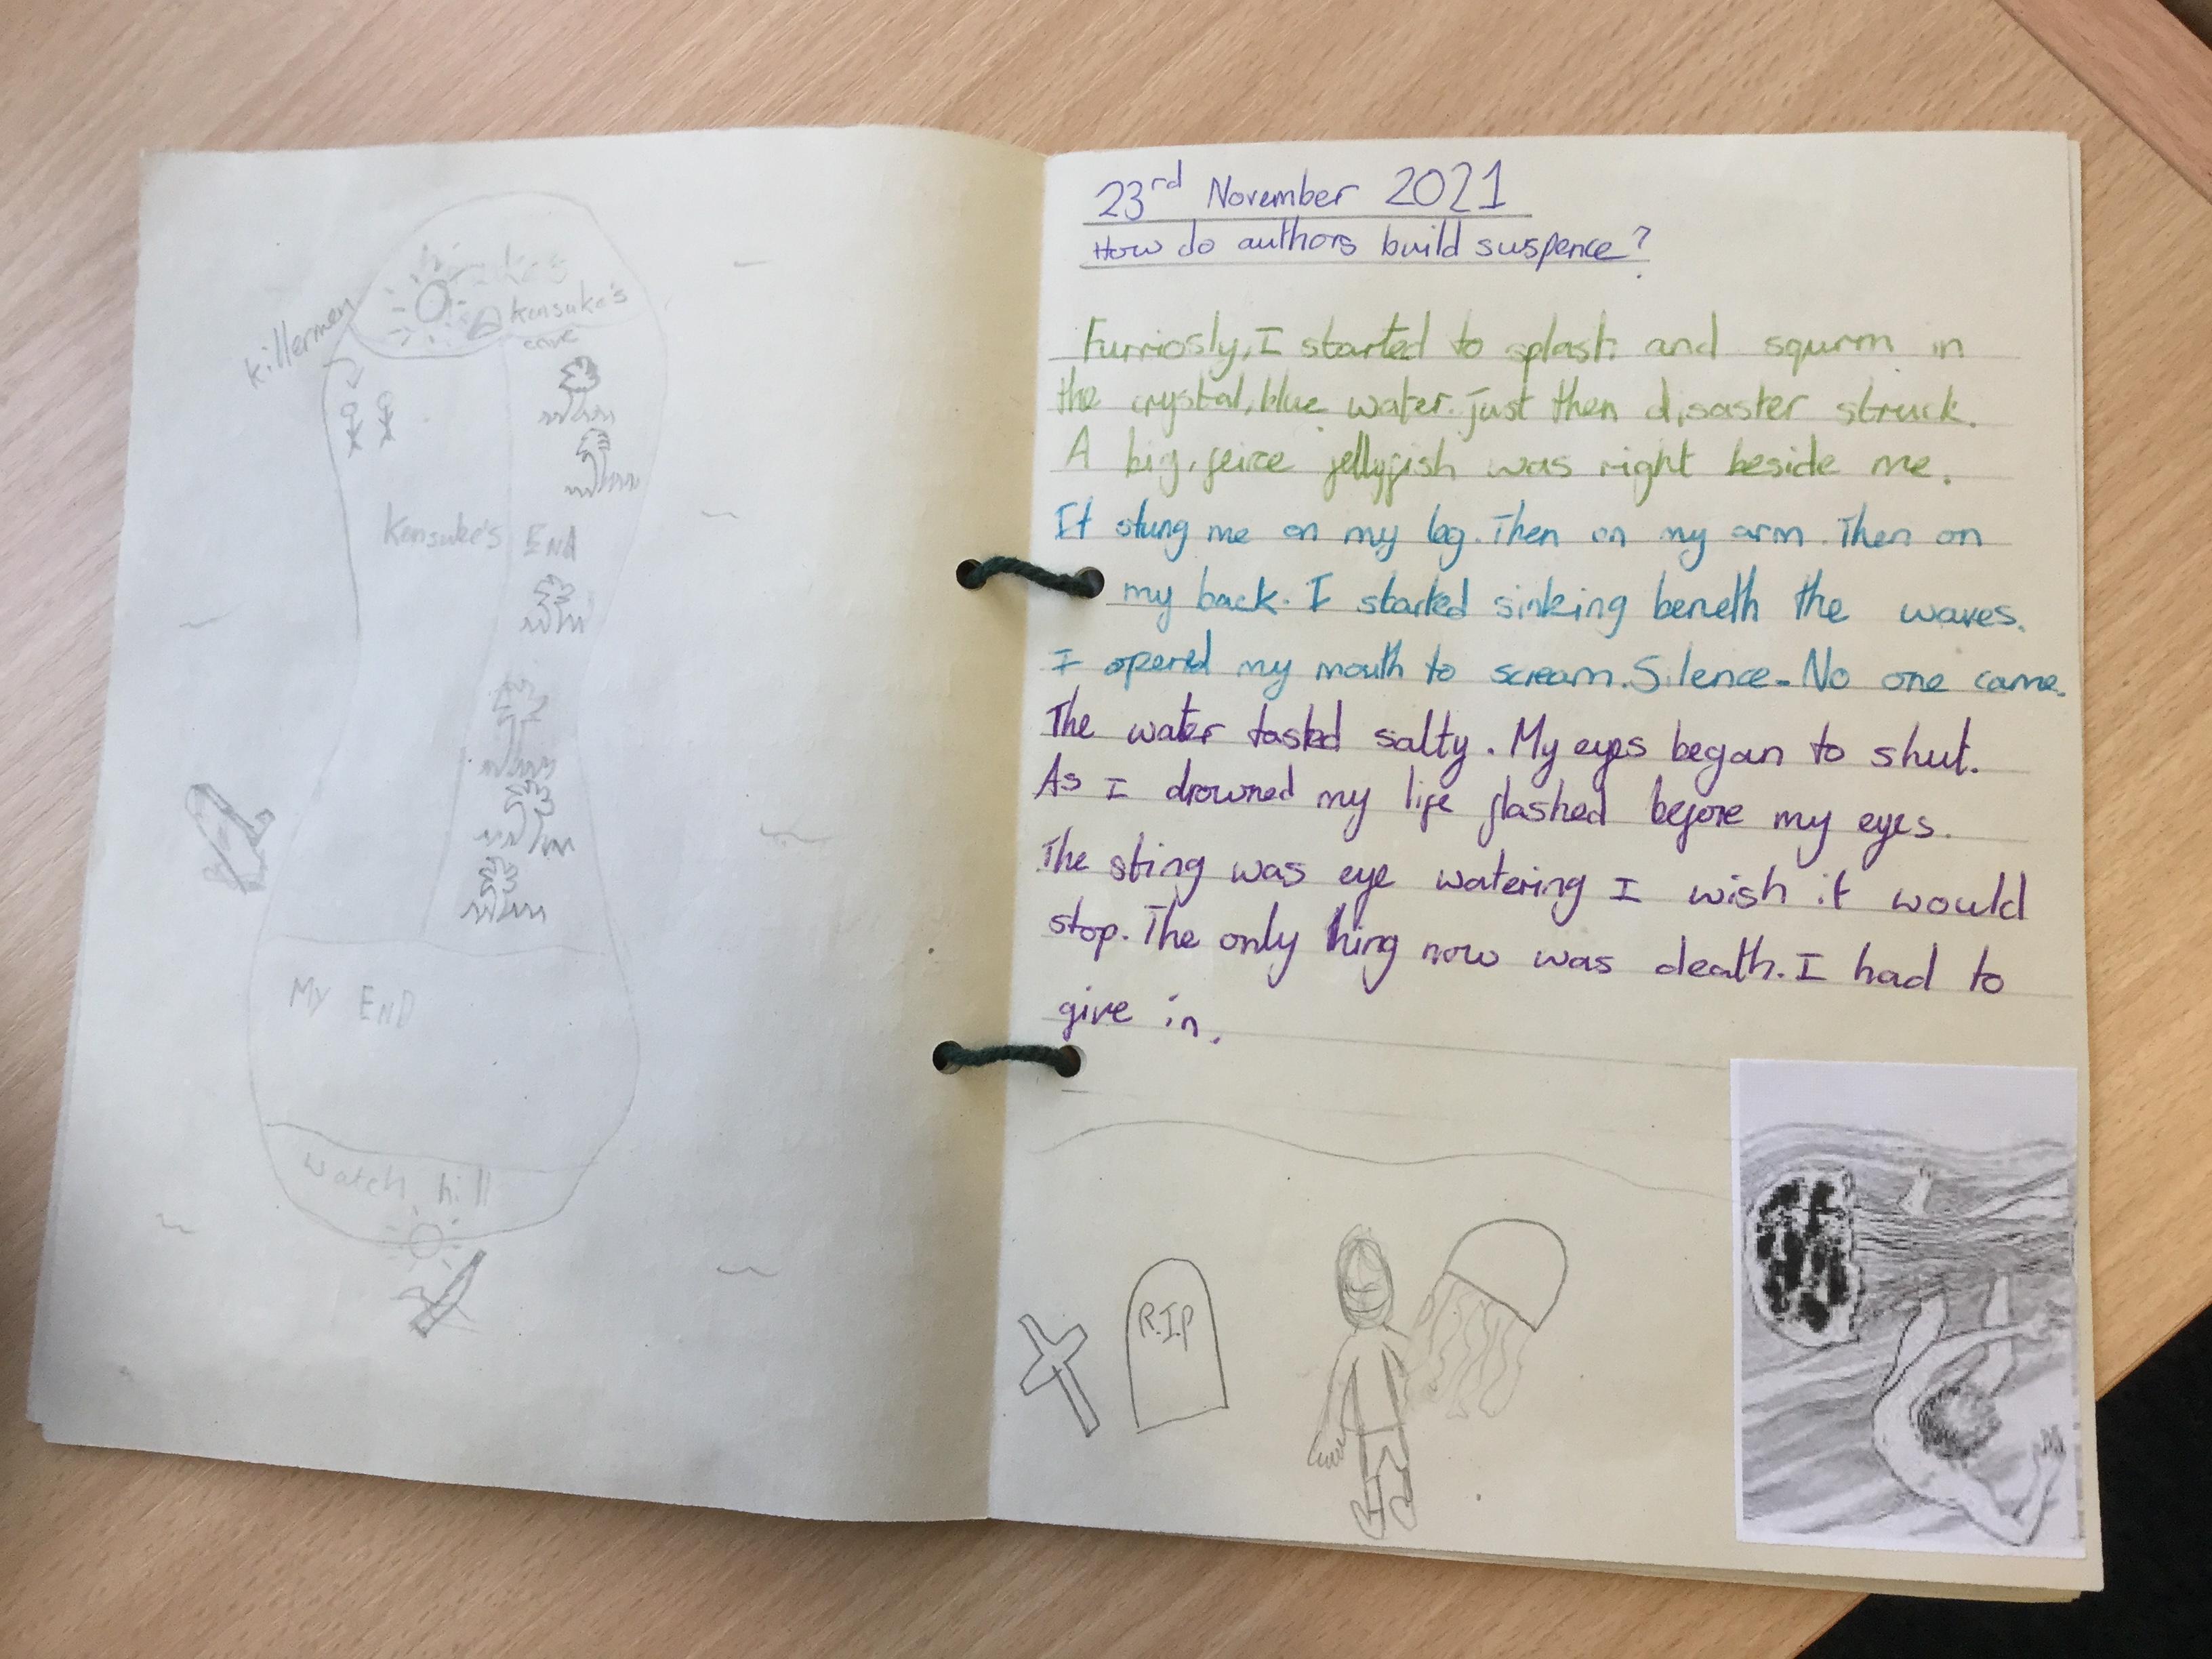 killermen
Kensuke's
cave
Kensuke's END
My END
Watch hill
23rd November 2021
How do authors build suspence?
Furriosly, I started to splash and squrm in
the crystal, blue water. just then disaster struck.
A big, feirce jellyfish was right beside me.
It stung me on my leg. Then on my arm. Then on
my back. I started sinking beneth the waves.
I opened my mouth to scream. Silence. No one came.
The water tasted salty. My eyes began to shut.
As I drowned my life flashed before my eyes.
The sting was eye watering I wish it would
stop. The only thing now was death. I had to
give in.
R.I.P